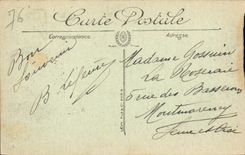 76
Carte Postale
Correspondance
Adresse
Bon
Souvenir
Madame Gossuin
La Roseraie
5 rue des Bassoins
Montmorency
Seine et Oise